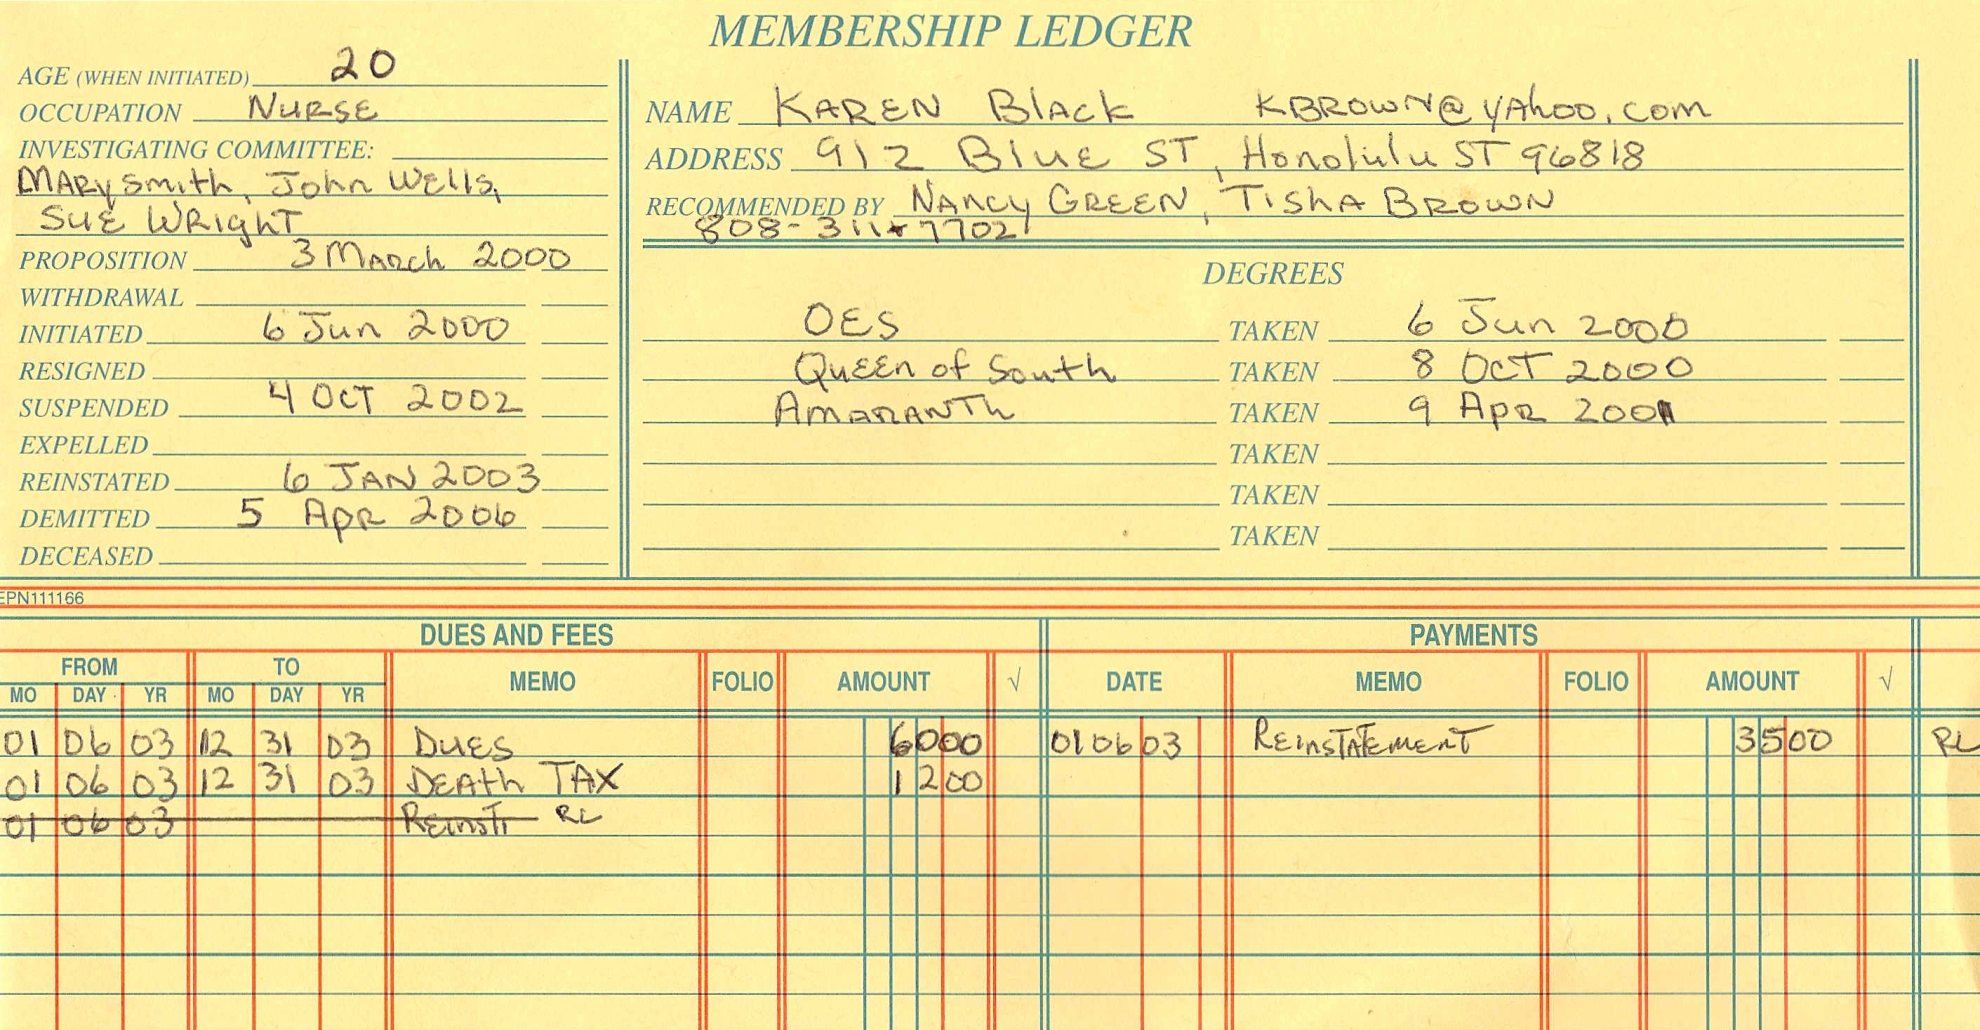 MEMBERSHIP LEDGER
AGE (WHEN INITIATED) 20
OCCUPATION NURSE
INVESTIGATING COMMITTEE:
MARY Smith, John Wells,
SUE WRIGHT
PROPOSITION 3 MARCH 2000
WITHDRAWAL
INITIATED 6 Jun 2000
RESIGNED
SUSPENDED 4 OCT 2002
EXPELLED
REINSTATED 6 JAN 2003
DEMITTED 5 APR 2006
DECEASED
NAME KAREN Black KBROWN@YAhoo.com
ADDRESS 912 Blue ST, Honolulu ST 96818
RECOMMENDED BY NANCY GREEN, TISHA BROWN
808-311-7702
DEGREES
OES TAKEN 6 Jun 2000
Queen of South TAKEN 8 OCT 2000
AMARANTH TAKEN 9 Apr 2001
TAKEN
TAKEN
TAKEN
EPN111166
DUES AND FEES PAYMENTS
FROM TO MEMO FOLIO AMOUNT √ DATE MEMO FOLIO AMOUNT √
MO DAY YR MO DAY YR
01 06 03 12 31 03 DUES 6000 010603 REINSTATEMENT 3500 RL
01 06 03 12 31 03 DEATH TAX 1200
01 06 03 REINST RL